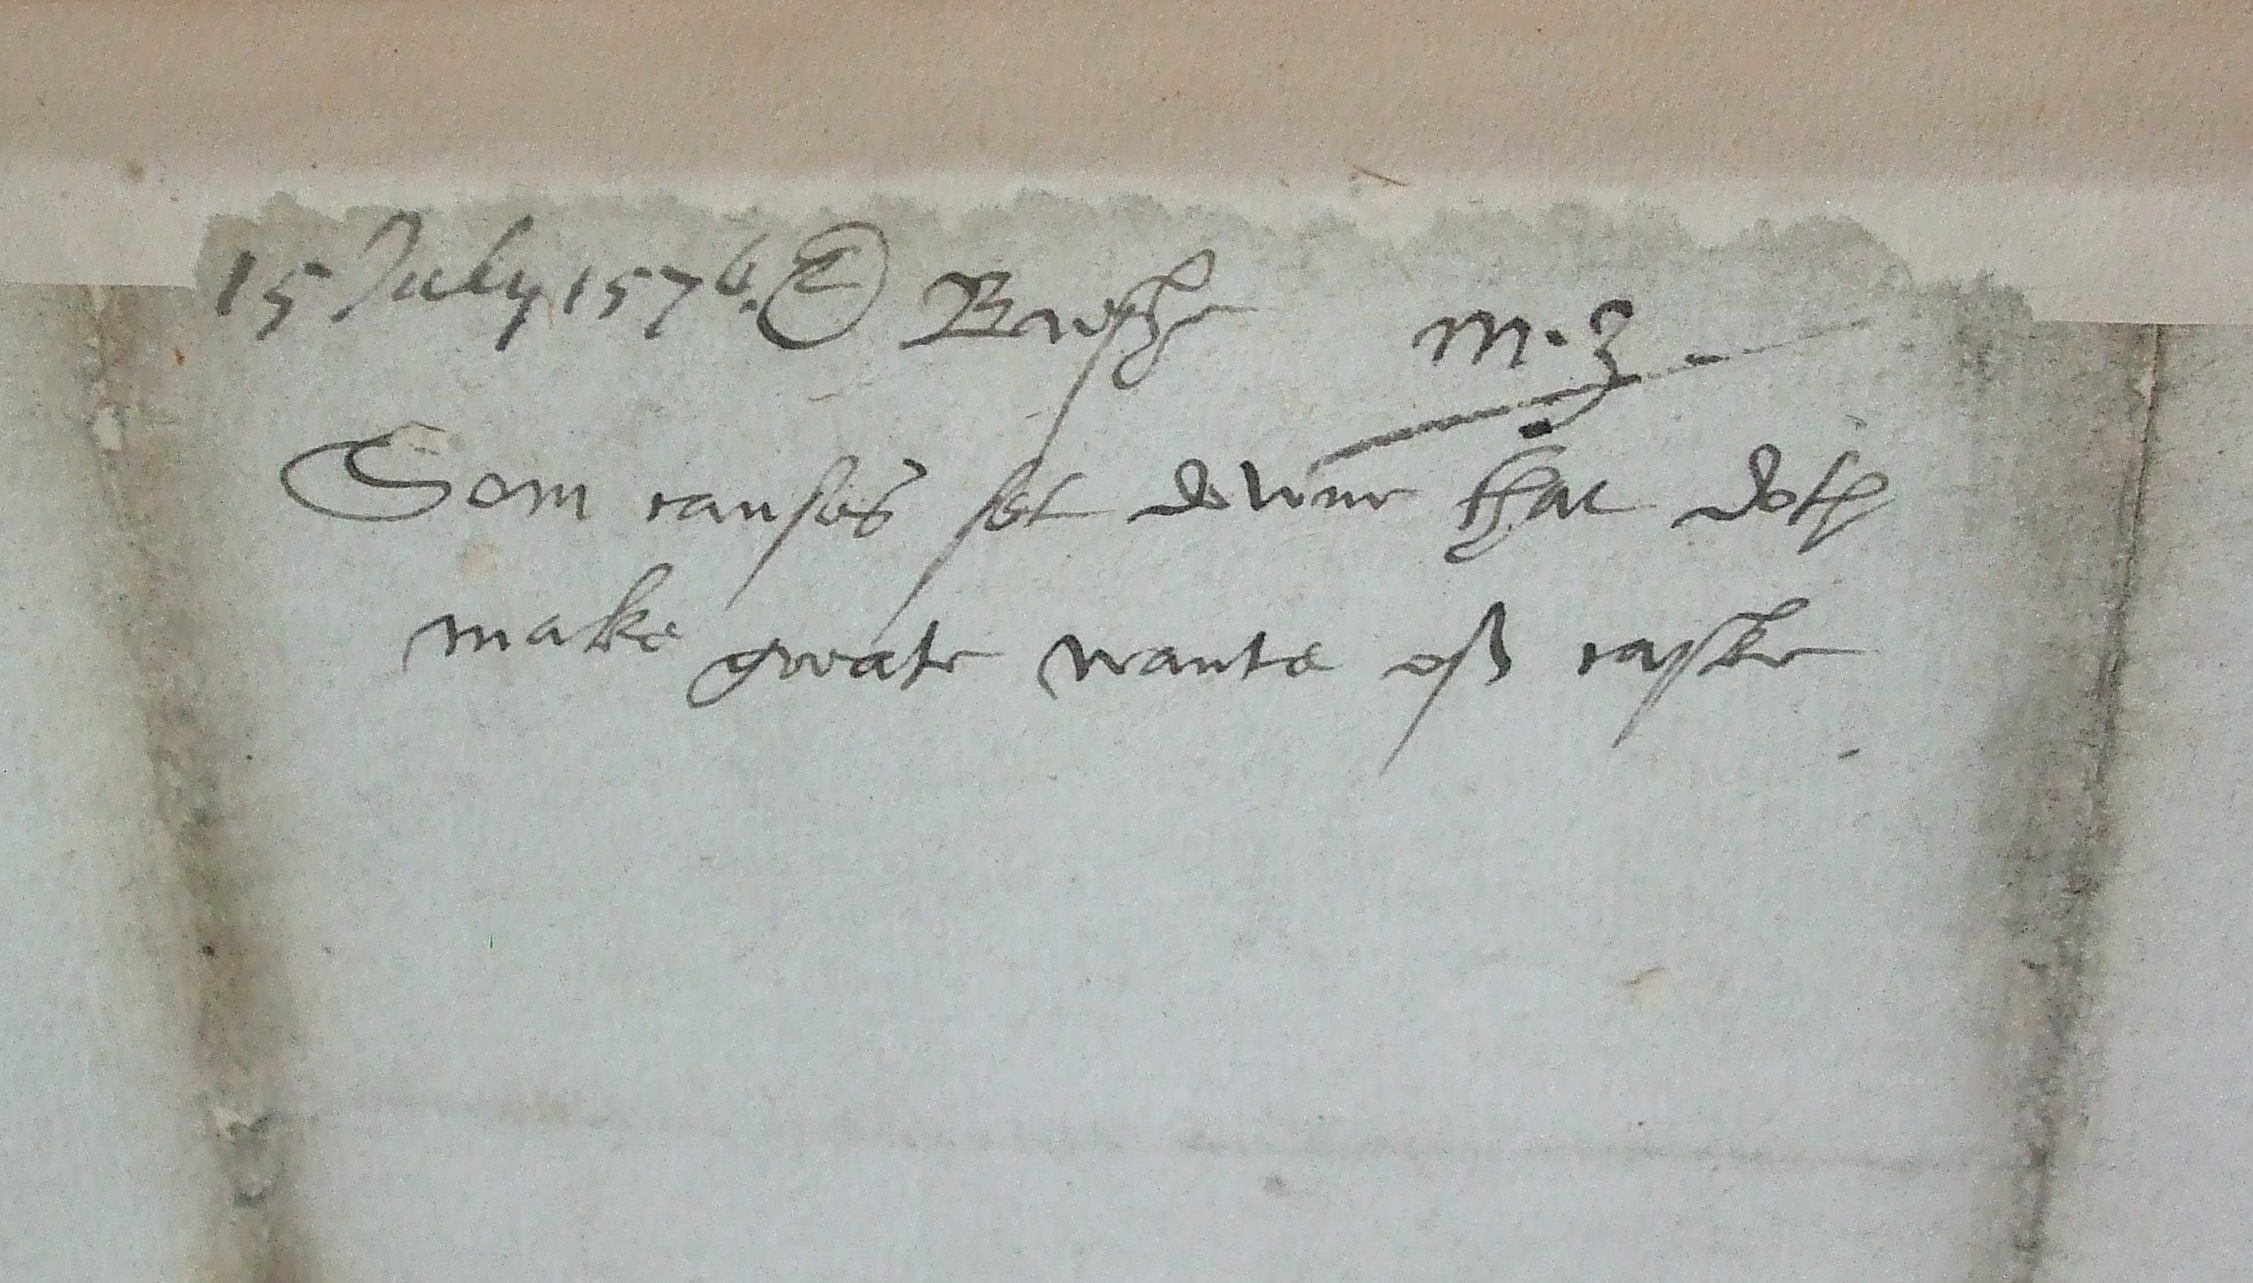 15 July 1576. E m.z
Som causes set downe that doth
make greate wante off caske